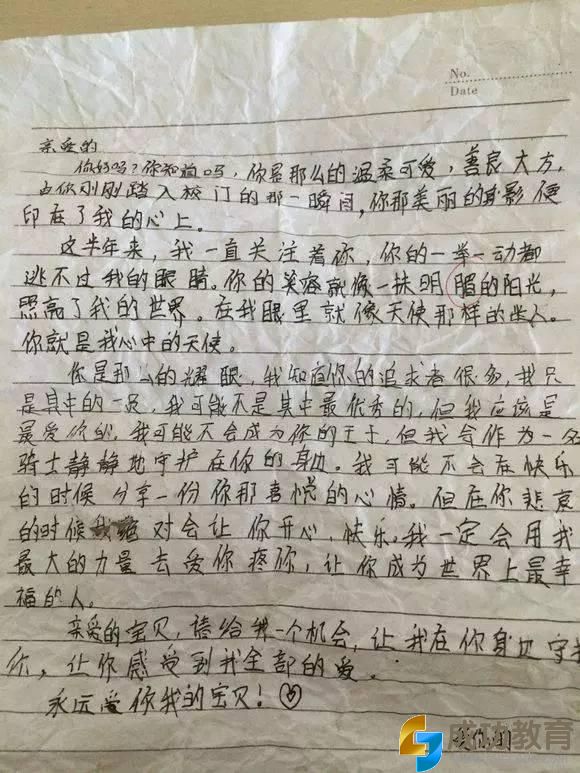 No.
Date
亲爱的
你好吗？你知道吗，你是那么的温柔可爱，善良大方，
当你刚刚踏入校门的那一瞬间，你那美丽的身影便
印在了我的心上。
这半年来，我一直关注着你，你的一举一动都
逃不过我的眼睛。你的笑容就像一抹明媚的阳光，
照亮了我的世界。在我眼里就像天使那样的坐人。
你就是我心中的天使。
你是那么的耀眼，我知道你的追求者很多，我只
是其中的一员，我可能不是其中最优秀的，但我应该是
最爱你的，我可能不会成为你的王子，但我会作为一名
骑士静静地守护在你的身边。我可能不会在快乐
的时候分享一份你那喜悦的心情。但在你悲哀
的时候我绝对会让你开心，快乐。我一定会用我
最大的力量去爱你疼你，让你成为世界上最幸
福的人。
亲爱的宝贝，请给我一个机会，让我在你身边守着
你，让你感受到我全部的爱。
永远爱你我的宝贝！
爱你的
成功教育